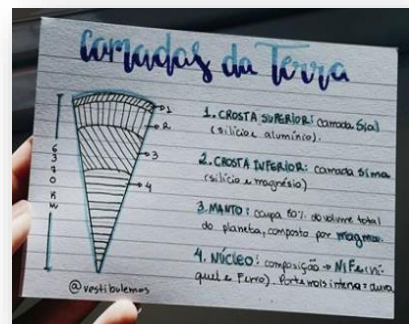 Camadas da Terra
1
2
3
4
6370 KM
1. CROSTA SUPERIOR: camada Sial
(silício e alumínio).
2. CROSTA INFERIOR: camada Sima
(silício e magnésio)
3. MANTO: ocupa 80% do volume total
do planeta, composto por magma.
4. NÚCLEO: composição → NIFe (ní-
quel e Ferro). Parte mais interna = dura
@vestibulemos